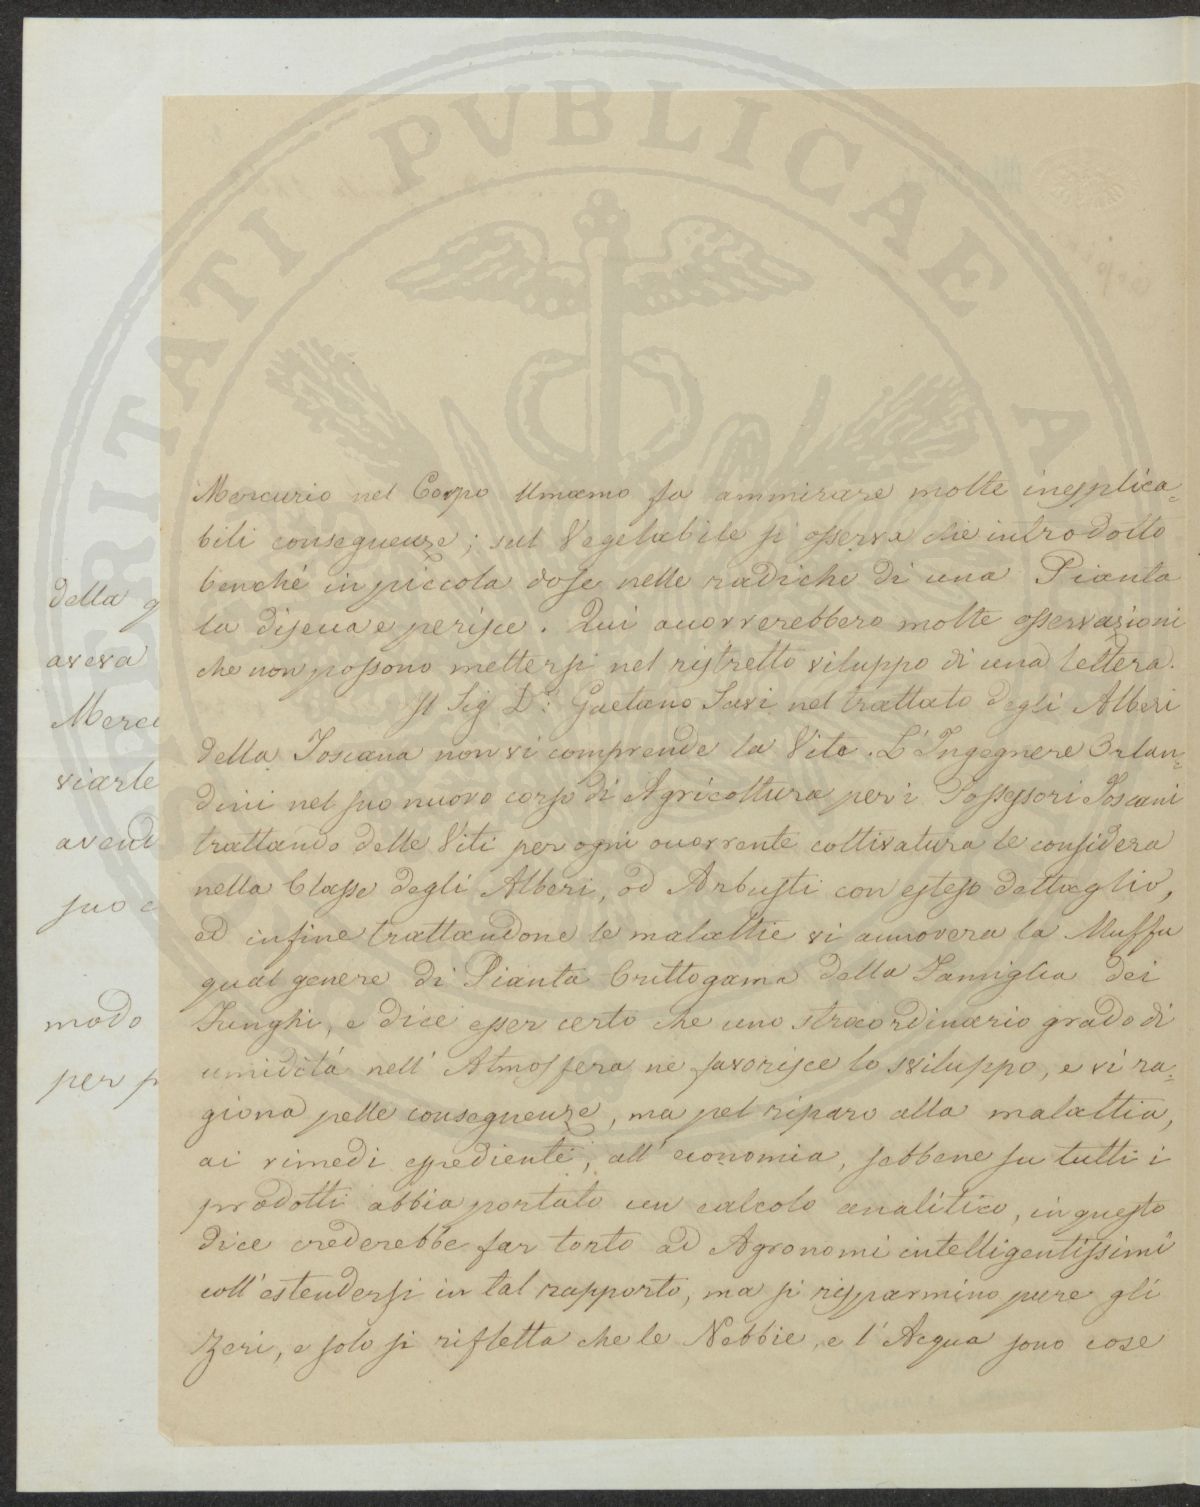 PROSPERITATI PVBLICAE A
Mercurio nel Corpo Umano fa ammirare molte inesplica=
bili conseguenze; sul Vegetabile si osserva che introdotto
benché in piccola dose nelle radiche di una Pianta
la disecca e perisce. Qui occorrerebbero molte osservazioni
che non possono mettersi nel ristretto viluppo di una lettera.
Il Sig D.: Gaetano Savi nel trattato degli Alberi
della Toscana non vi comprende la Vite. L'Ingegnere Orlan=
dini nel suo nuovo corso di Agricoltura per i Possessori Toscani
trattando delle Viti per ogni occorrente coltivatura le considera
nella Classe degli Alberi, od Arbusti con esteso dettaglio,
ed infine trattandone le malattie vi annovera la Muffa
qual genere di Pianta Crittogama della Famiglia dei
Funghi, e dice esser certo che uno straordinario grado di
umidità nell' Atmosfera ne favorisce lo sviluppo, e vi ra=
giona pelle conseguenze, ma pel riparo alla malattia,
ai rimedi espedienti, all' economia, sebbene su tutti i
prodotti abbia portato un calcolo analitico, in questo
dice crederebbe far torto ad Agronomi intelligentissimi
coll' estendersi in tal rapporto, ma si risparmino pure gli
Zeri, e solo si rifletta che le Nebbie, e l' Acqua sono cose
della
aveva
Merc
viarle
avend
suo
modo
per p